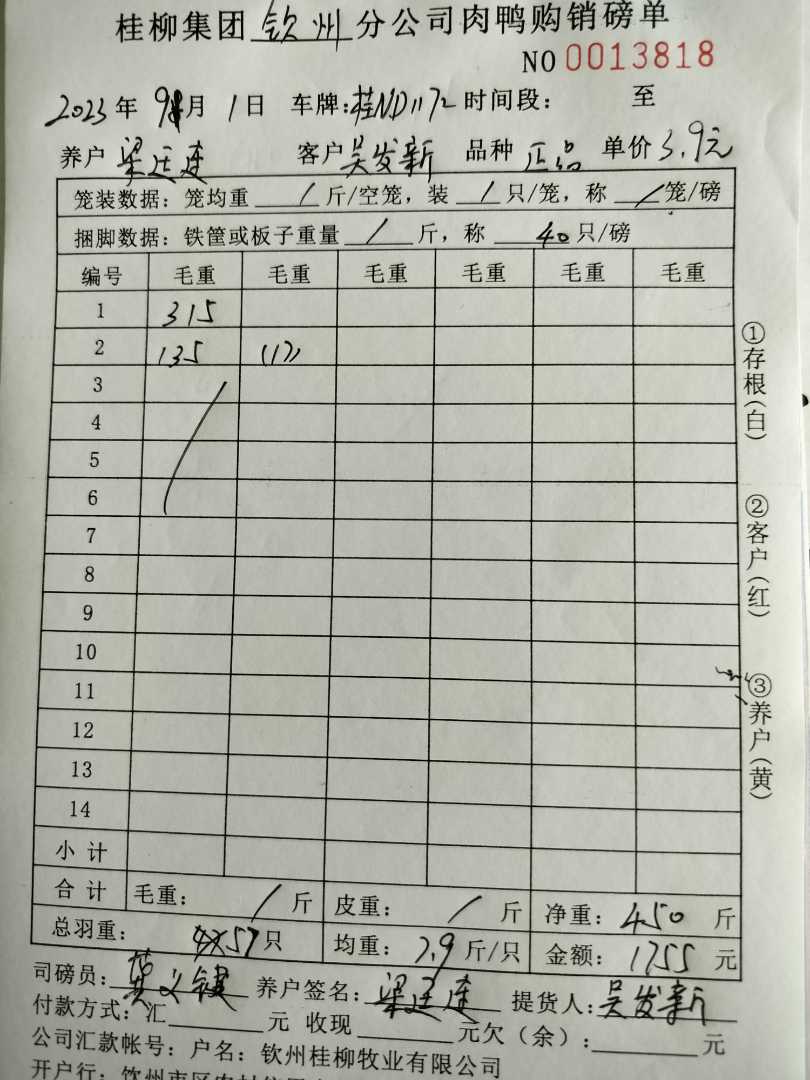 桂柳集团 钦州 分公司肉鸭购销磅单
NO 0013818
2023 年 9月 1日 车牌:桂ND1172 时间段: 至
养户 梁廷连 客户 吴发新 品种 正品 单价 3.9元
笼装数据: 笼均重 / 斤/空笼, 装 / 只/笼, 称 / 笼/磅
捆脚数据: 铁筐或板子重量 / 斤, 称 40 只/磅
编号 毛重 毛重 毛重 毛重 毛重 毛重
1 315
2 135 (17)
3
4
5
6
7
8
9
10
11
12
13
14
小计
合计 毛重: / 斤 皮重: / 斤 净重: 450 斤
总羽重: 57只 均重: 7.9 斤/只 金额: 1755 元
司磅员: 义键 养户签名: 梁廷连 提货人: 吴发新
付款方式: 汇 元 收现 元欠(余): 元
公司汇款帐号: 户名: 钦州桂柳牧业有限公司
开户行: 钦州市区农村信用
①存根(白)
②客户(红)
③养户(黄)